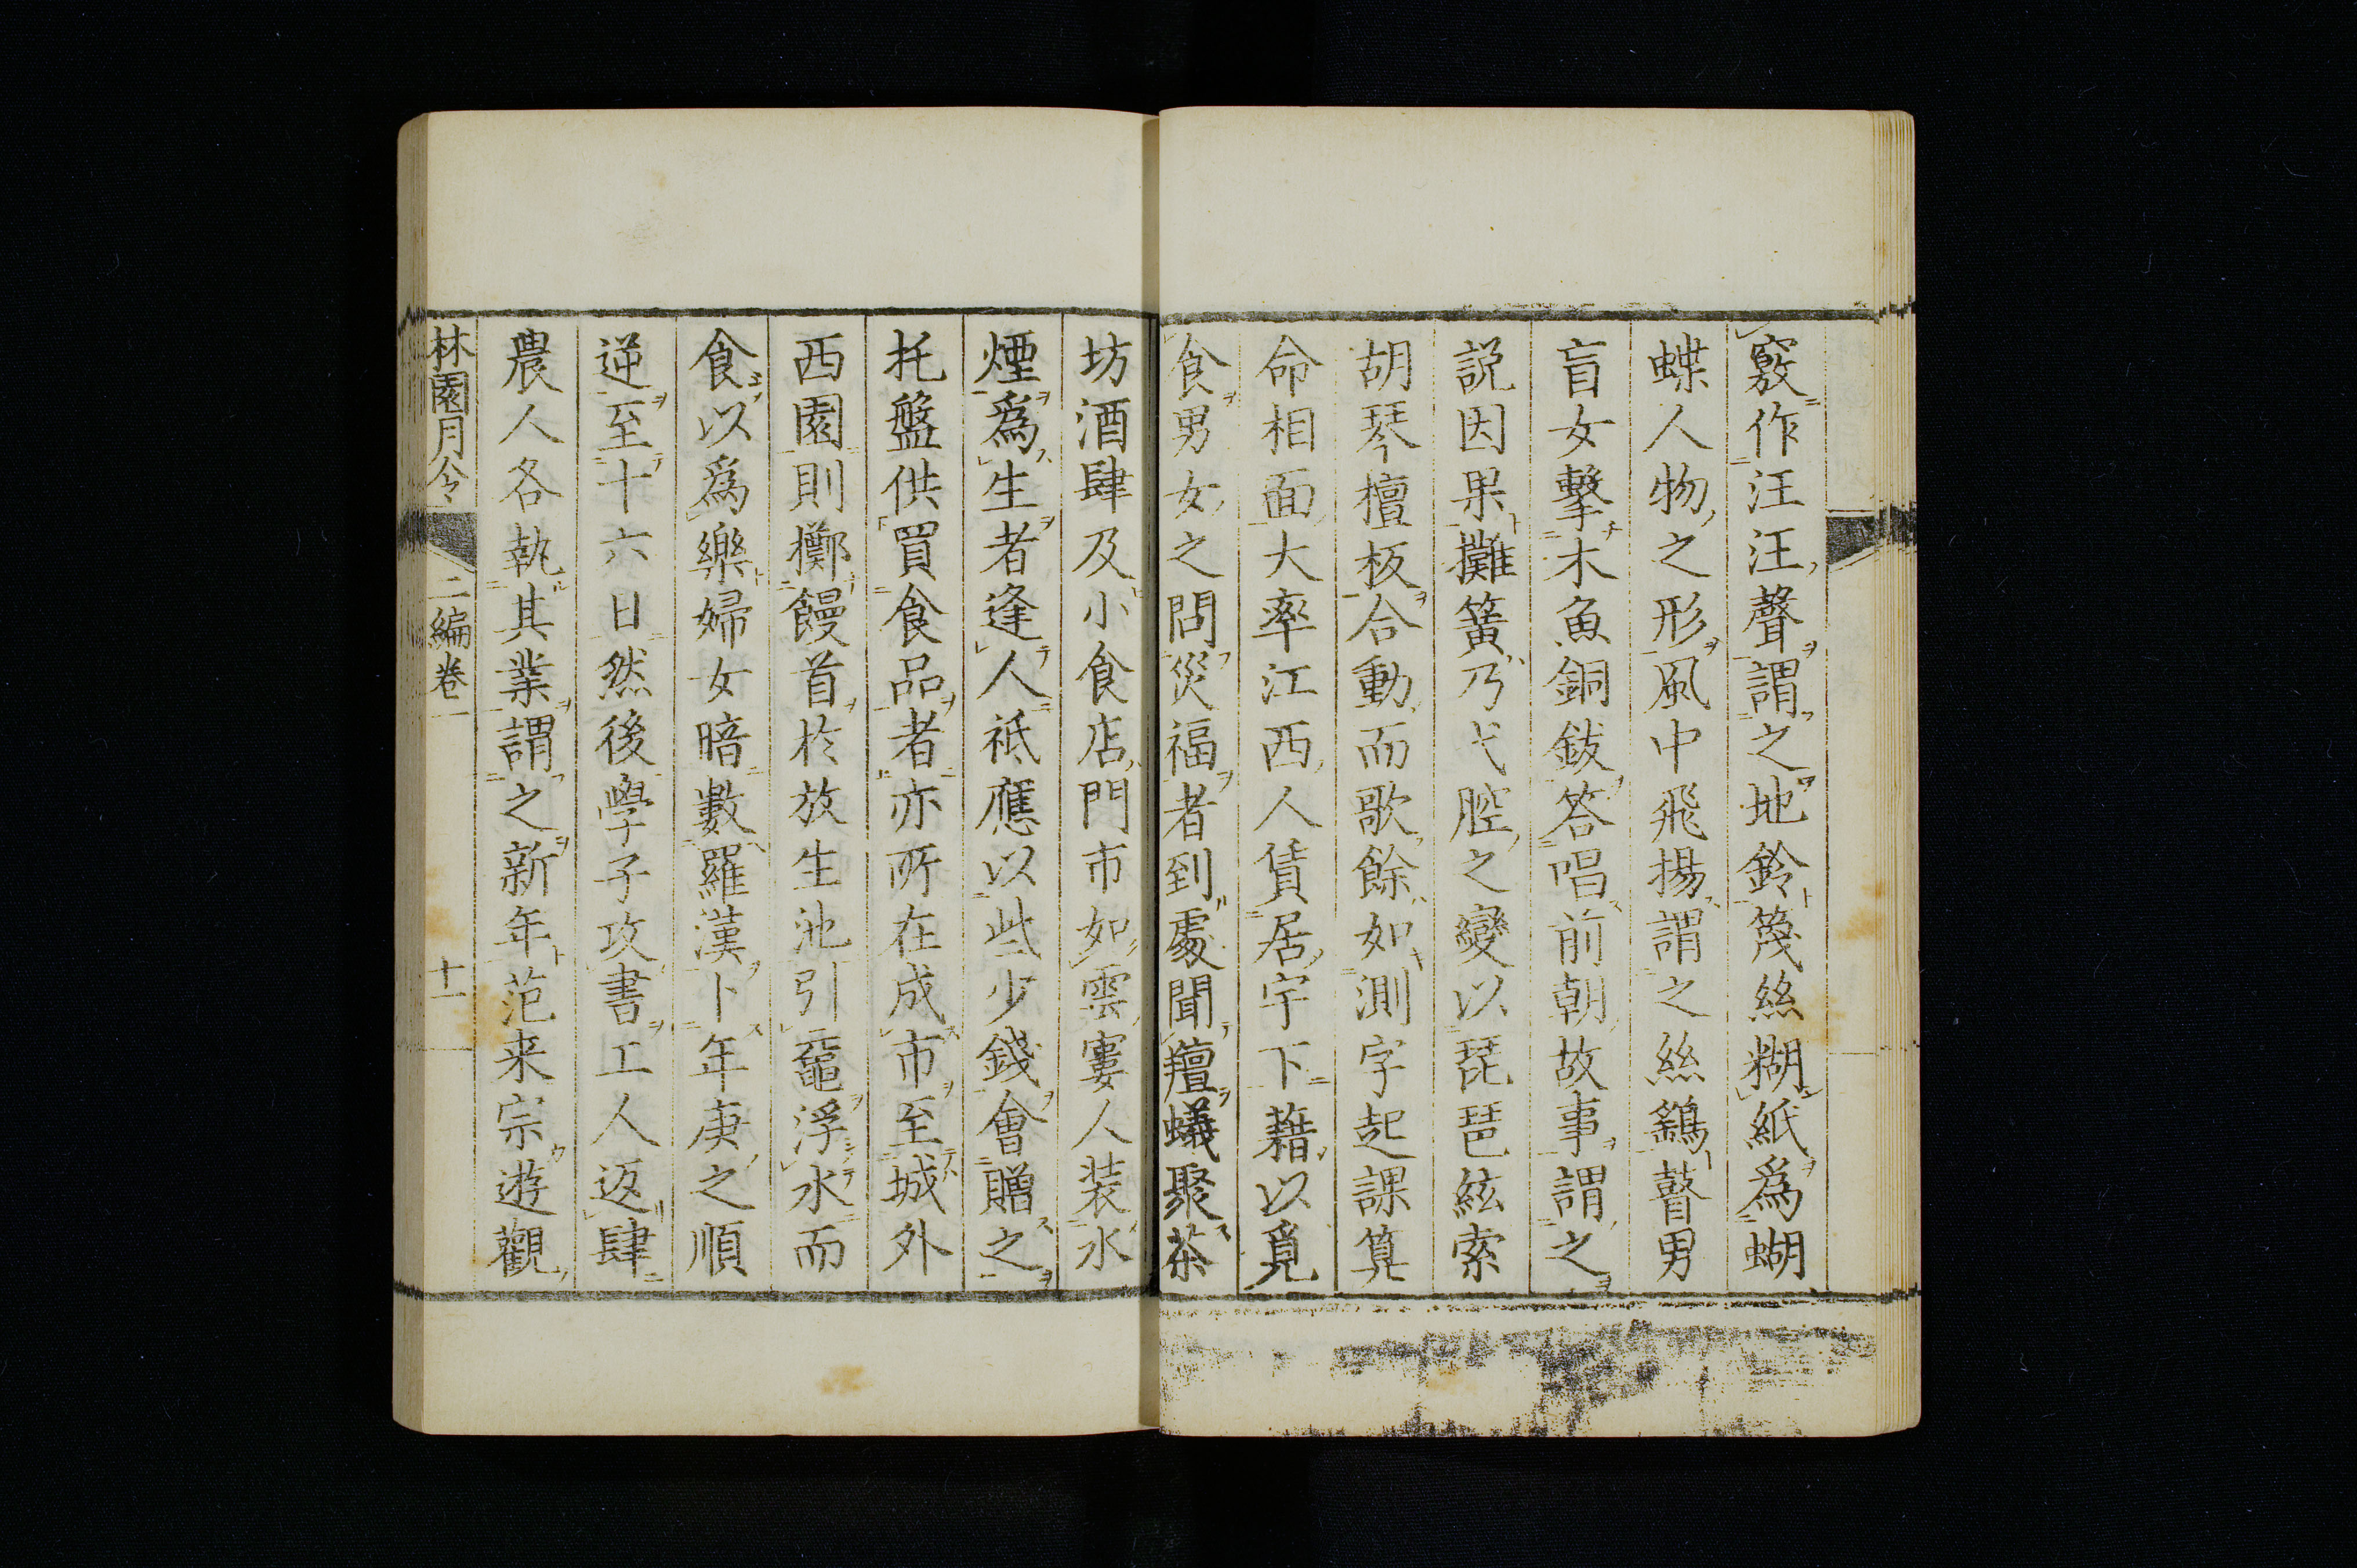 竅作汪汪聲謂之地鈴篾絲糊紙爲蝴
蝶人物之形風中飛揚謂之絲鷂瞽男
盲女擊木魚銅鈸答唱前朝故事謂之
説因果攤簧乃弋腔之變以琵琶絃索
胡琴檀板合動而歌餘如測字起課算
命相面大率江西人賃居宇下藉以覓
食男女之問災福者到處聞羶蟻聚茶
坊酒肆及小食店門市如雲窶人装水
煙爲生者逢人祗應以些少錢會贈之
托盤供買食品者亦所在成市至城外
西園則擲饅首於放生池引黿浮水而
食以爲樂婦女暗數羅漢卜年庚之順
逆至十六日然後學子攻書工人返肆
農人各執其業謂之新年范来宗遊觀
林園月令 二編卷一 十一